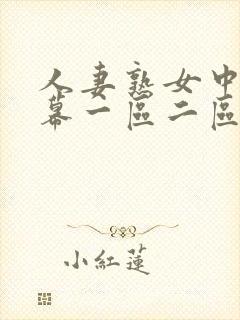 人妻熟女中
幕一區二區
小紅蓮